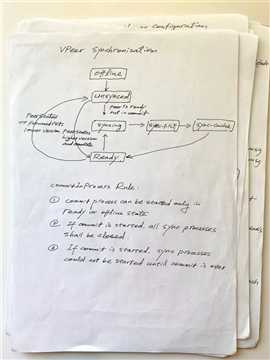 configuration
VPeer Synchronization
offline
unsynced
peer is ready
not in commit
Peer status
lower version
Peer status
higher version
and complete
syncing
Ready
commitInProcess Rule:
① commit process can be started only in
ready or offline state
② If commit is started, all sync processes
shall be closed
③ If commit is started, sync processes
could not be started until commit is over